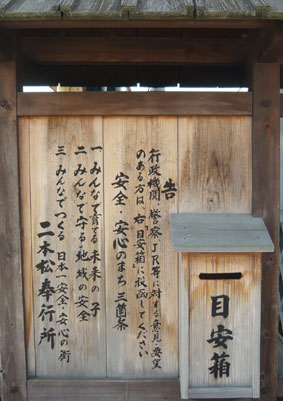 告
行政機関・警察・JR等に対する意見・要望
のある方は、右目安箱に投函してください
安全・安心のまち 三箇条
一 みんなで育てる 未来の子
二 みんなで守る 地域の安全
三 みんなでつくる 日本一安全・安心の街
二本松奉行所
目安箱